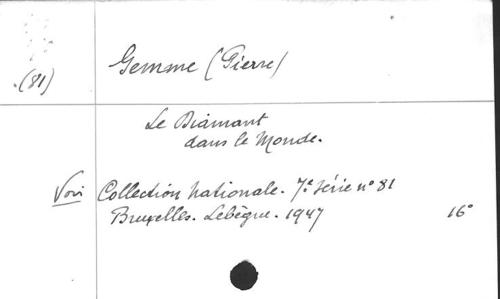 Gemme (Pierre)
(81)
Le Diamant
dans le Monde.
Voir Collection Nationale. 7e série n° 81
Bruxelles. Lebègue. 1947 16°